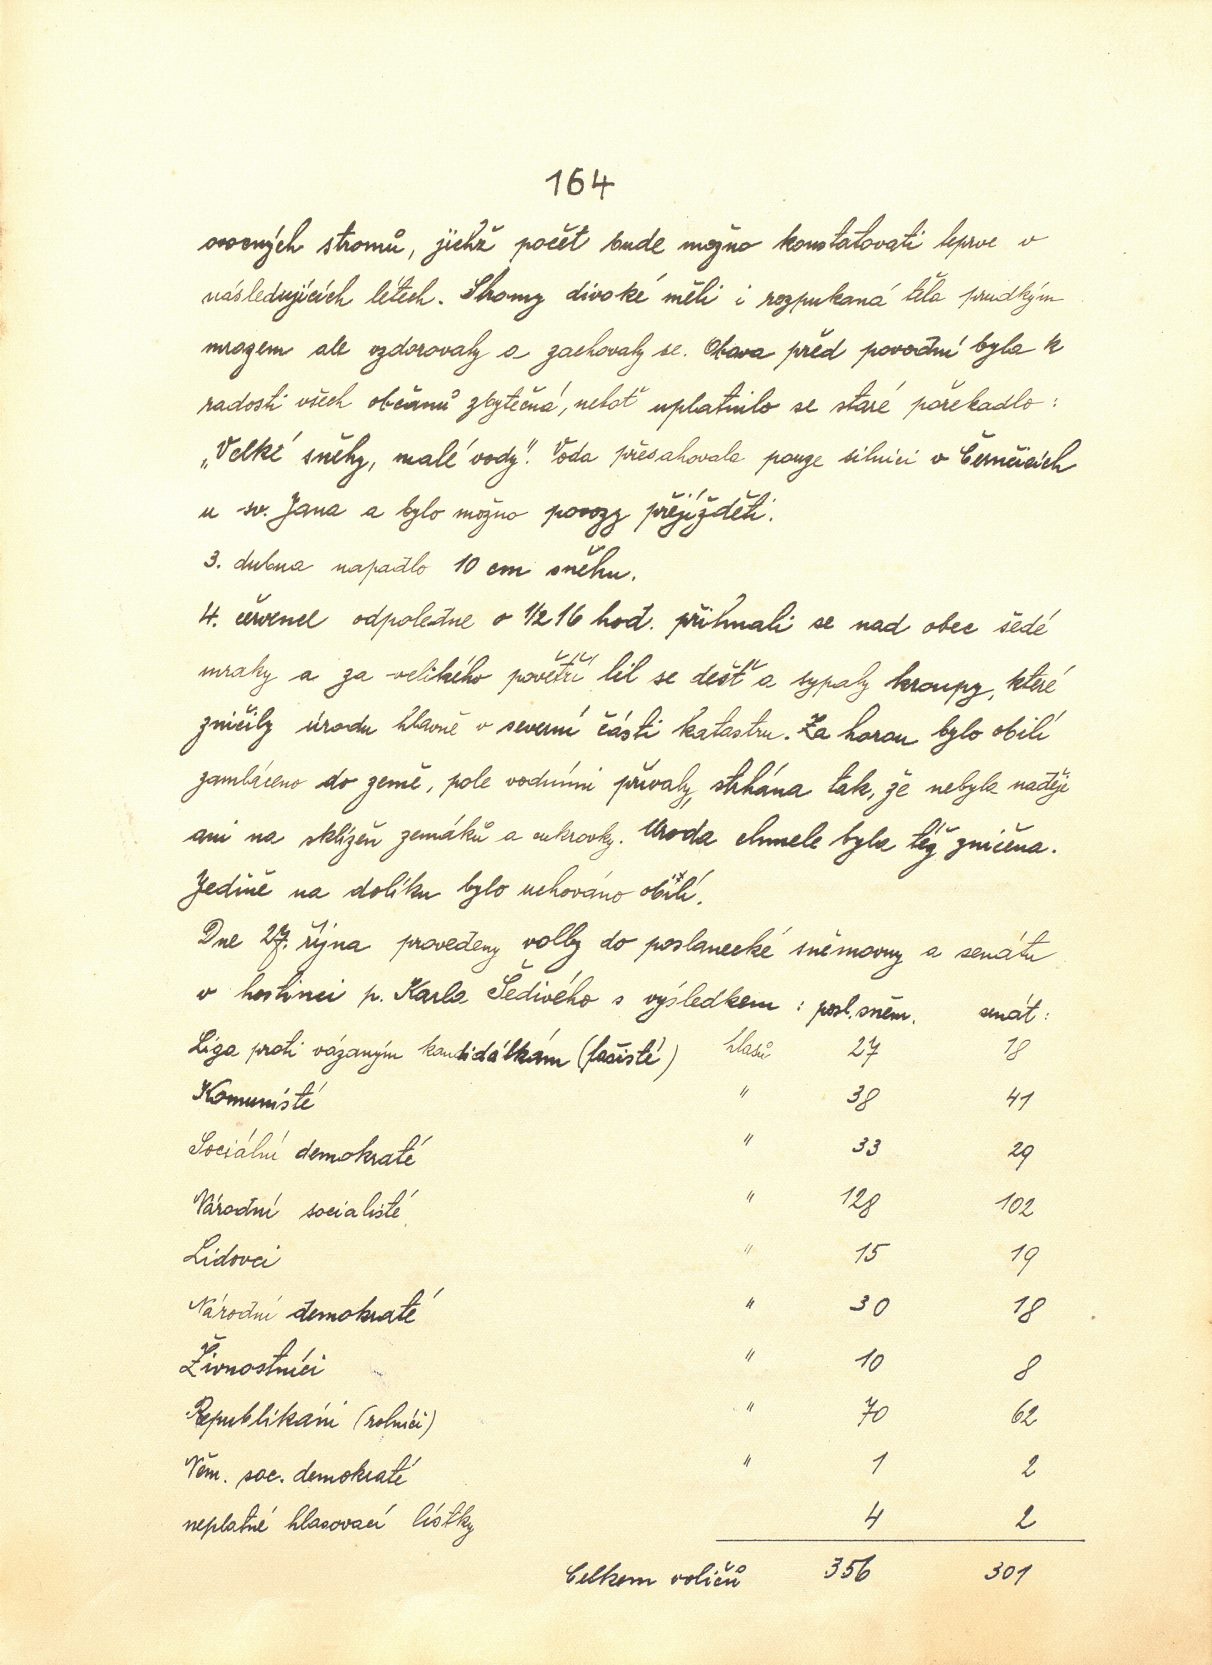 164
ovocných stromů, jichž počet bude možno konstatovati teprve v
následujících létech. Stromy divoké měli i rozpukaná těla prudkým
mrazem ale vzdorovaly a zachovaly se. Obava před povodní byla k
radosti všech občanů zbytečná, neboť uplatnilo se staré pořekadlo:
„Velké sněhy, malé vody". Voda přesahovala pouze silnici v Černčicích
u sv. Jana a bylo možno povozy přejížděti.
3. dubna napadlo 10 cm sněhu.
4. červenec odpoledne o 1/2 16 hod. přihnali se nad obec šedé
mraky a za velikého povětří lil se dešť a sypaly kroupy, které
zničily úrodu hlavně v severní části katastru. Za horou bylo obilí
zamláceno do země, pole vodními přívaly, strhána tak, že nebyla naděje
ani na sklizeň zemáků a cukrovky. Úroda chmele byla též zničena.
Jedině na dolíku bylo uchováno obilí.
Dne 27. října provedeny volby do poslanecké sněmovny a senátu
v hostinci p. Karla Šedivého s výsledkem: posl. sněm. senát:
Liga proti vázaným kandidátkám (fašisté) hlasů 27 18
Komunisté " 38 41
Sociální demokraté " 33 29
Národní socialisté " 128 102
Lidovci " 15 19
Národní demokraté " 30 18
Živnostníci " 10 8
Republikáni (rolníci) " 70 62
Něm. soc. demokraté " 1 2
neplatné hlasovací lístky 4 2
Celkem voličů 356 301